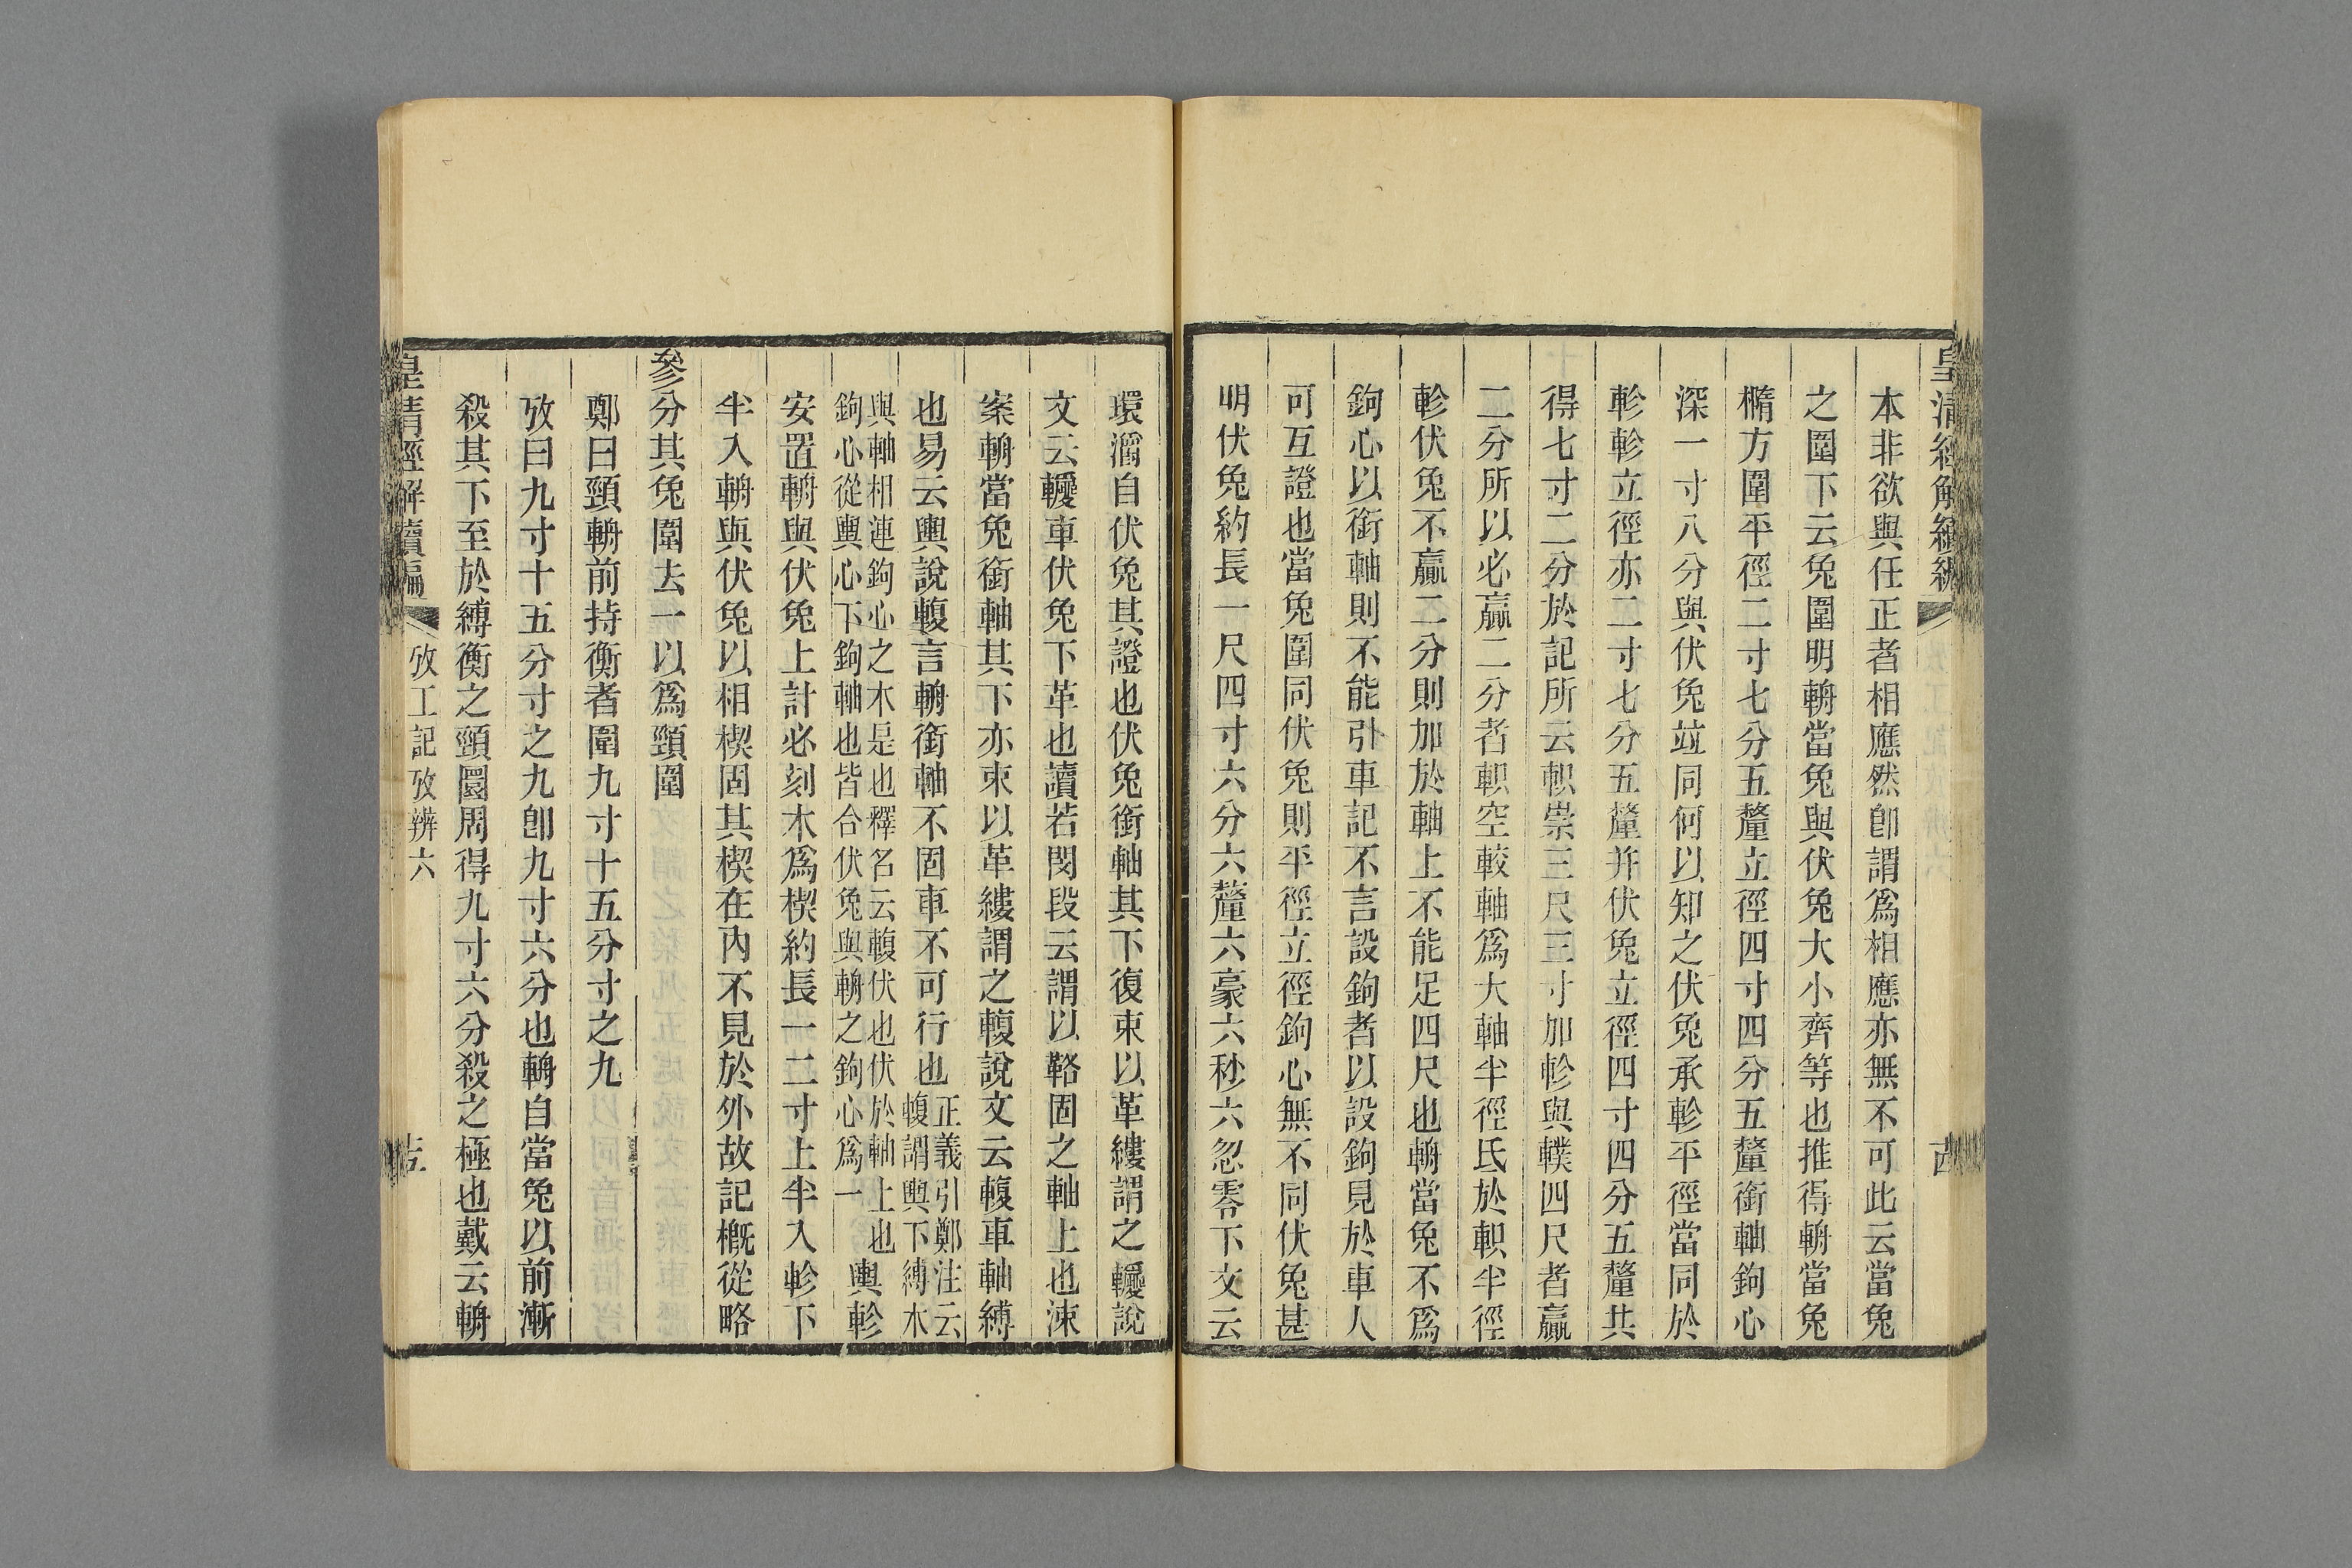 皇清經解續編
本非欲與任正者相應然卽謂爲相應亦無不可此云當兔
之圍下云兔圍明輈當兔與伏兔大小齊等也推得輈當兔
橢方圍平徑二寸七分五釐立徑四寸四分五釐銜軸鉤心
深一寸八分與伏兔竝同何以知之伏兔承軫平徑當同於
軫軫立徑亦二寸七分五釐并伏兔立徑四寸四分五釐共
得七寸二分於記所云軹崇三尺三寸加軫與轐四尺者贏
二分所以必贏二分者軹空較軸爲大軸半徑氐於軹半徑
軫伏兔不贏二分則加於軸上不能足四尺也輈當兔不爲
鉤心以銜軸則不能引車記不言設鉤者以設鉤見於車人
可互證也當兔圍同伏兔則平徑立徑鉤心無不同伏兔甚
明伏兔約長一尺四寸六分六釐六豪六秒六忽零下文云
環灂自伏兔其證也伏兔銜軸其下復束以革縷謂之䡺說
文云䡺車伏兔下革也讀若閔段云謂以鞈固之軸上也涑
案輈當兔銜軸其下亦束以革縷謂之輹說文云輹車軸縛
也易云輿說輹言輈銜軸不固車不可行也正義引鄭注云
輹謂輿下縛木
與軸相連鉤心之木是也釋名云輹伏也伏於軸上也
鉤心從輿心下鉤軸也皆合伏兔與輈之鉤心爲一輿軫
安置輈與伏兔上計必刻木爲楔約長一二寸上半入軫下
半入輈與伏兔以相楔固其楔在內不見於外故記槪從略
參分其兔圍去一以爲頸圍
鄭曰頸輈前持衡者圍九寸十五分寸之九
攷曰九寸十五分寸之九卽九寸六分也輈自當兔以前漸
殺其下至於縛衡之頸圜周得九寸六分殺之極也戴云輈
皇清經解續編
攷工記攷辨六